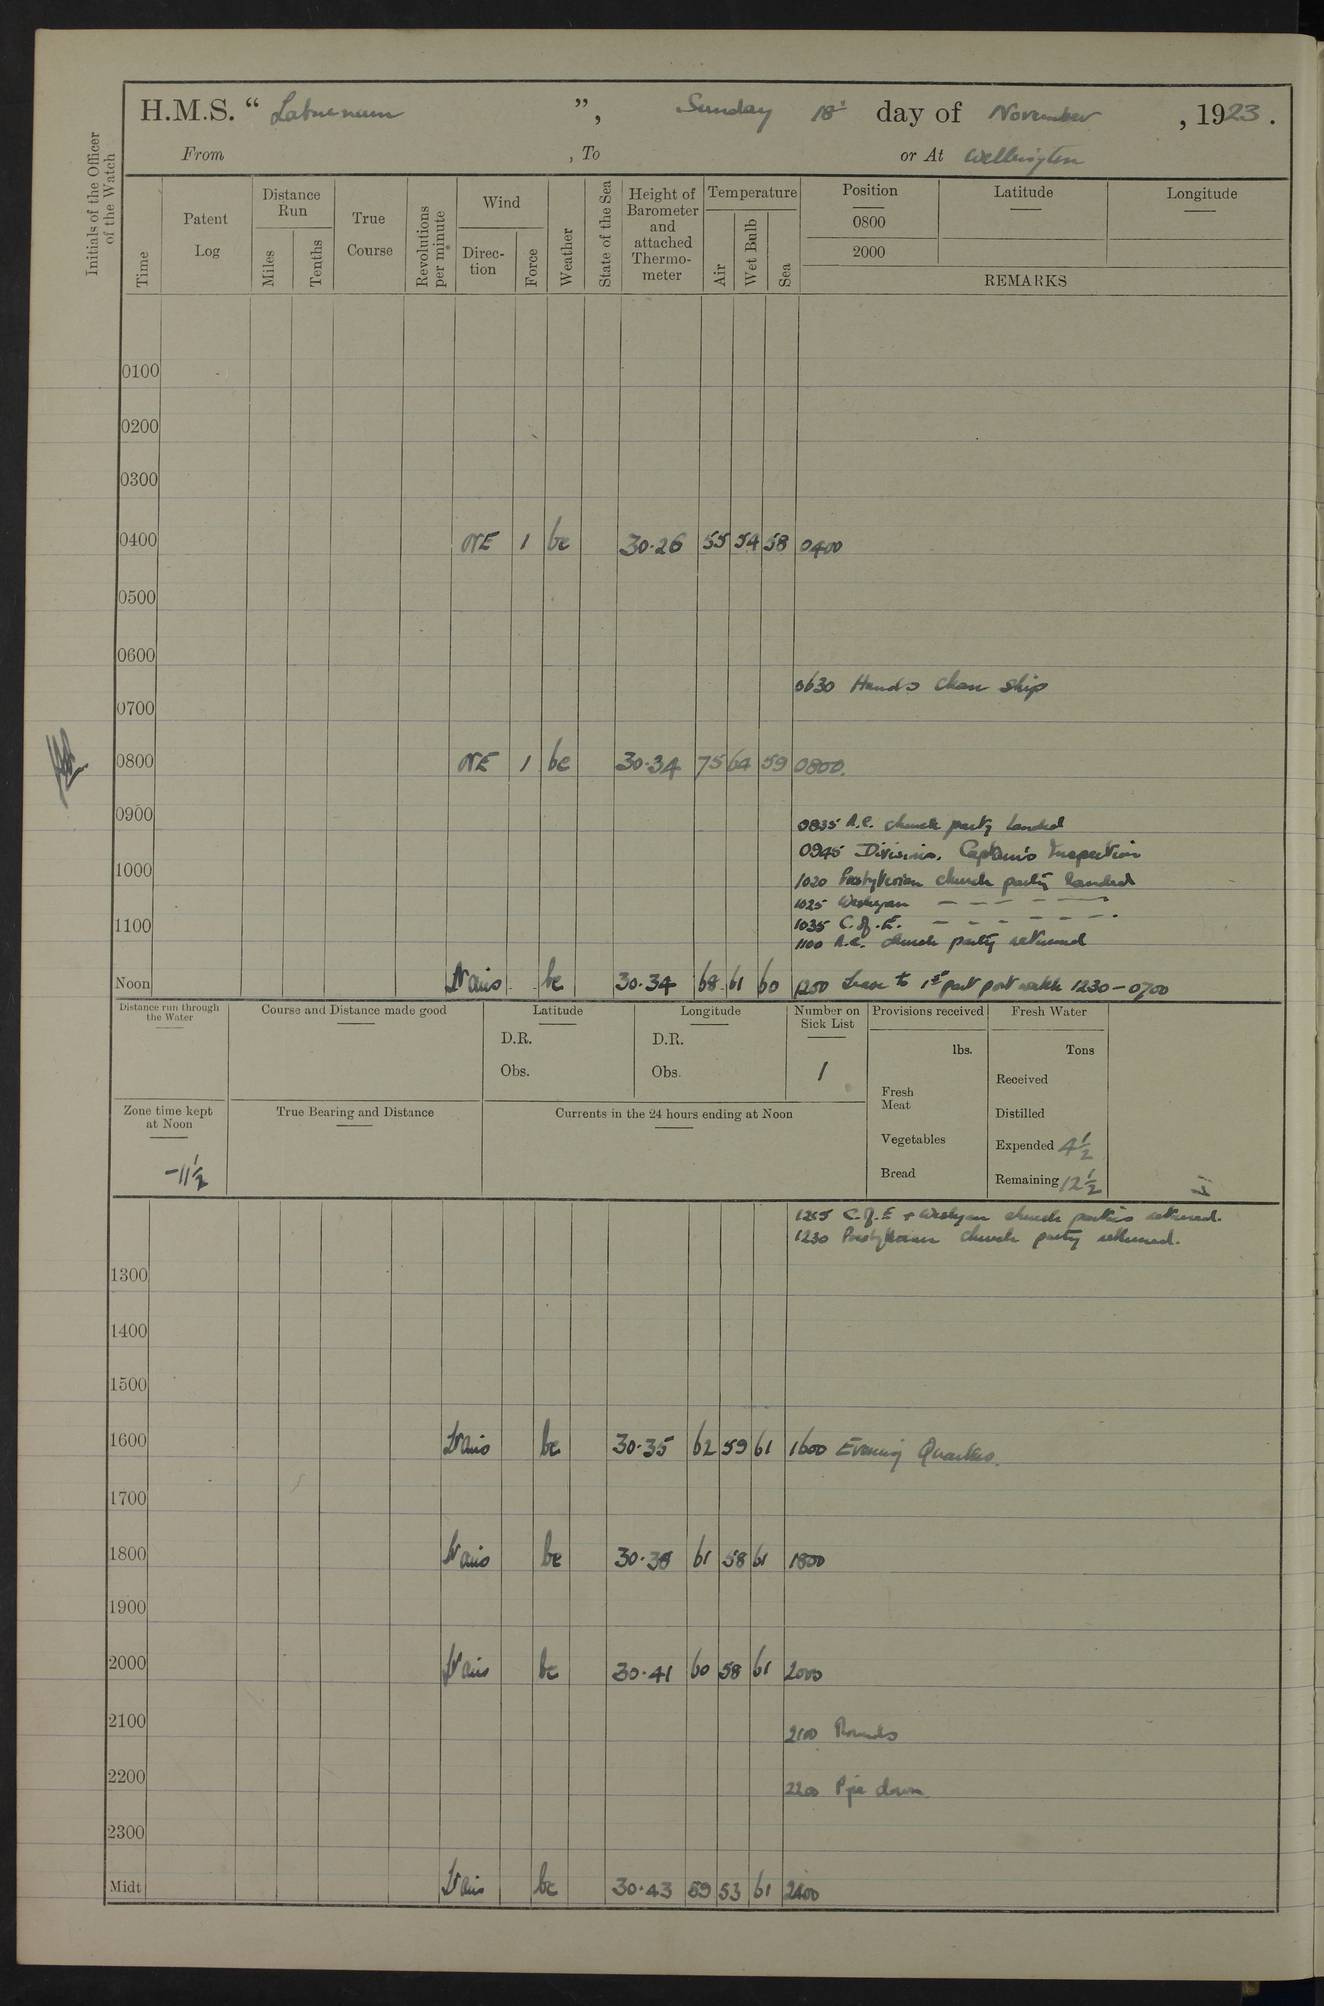 H.M.S. “ Laburnum ”, Sunday 18th day of November , 1923.
From , To or At Wellington
Initials of the Officer of the Watch
Time Patent Log Distance Run Miles Tenths True Course Revolutions per minute Wind Direction Force Weather State of the Sea Height of Barometer and attached Thermometer Temperature Air Wet Bulb Sea
Position Latitude Longitude
0800
2000
REMARKS
0100
0200
0300
0400 NE 1 bc 30.26 55 54 58 0400
0500
0600
0630 Hands clean ship
0700
0800 NE 1 bc 30.34 75 64 59 0800.
0900
0835 R.C. church party landed
0945 Divisions. Captain's Inspection
1000
1020 Presbyterian church party landed
1025 Wesleyan — — — — —
1100
1035 C. of. E. — — — — —
1100 R.C. church party returned
Noon Lt airs bc 30.34 68 61 60 1200 Leave to 1st part port watch 1230 – 0700
Distance run through the Water
Course and Distance made good
Latitude
D.R.
Obs.
Longitude
D.R.
Obs.
Number on Sick List
1
Provisions received
lbs.
Fresh Meat
Vegetables
Bread
Fresh Water
Tons
Received
Distilled
Expended 4½
Remaining 12½
Zone time kept at Noon
-11½
True Bearing and Distance
Currents in the 24 hours ending at Noon
1215 C. of. E + Wesleyan church parties returned.
1230 Presbyterian church party returned.
1300
1400
1500
1600 Lt airs bc 30.35 62 59 61 1600 Evening Quarters.
1700
1800 Lt airs bc 30.38 61 58 61 1800
1900
2000 Lt airs bc 30.41 60 58 61 2000
2100
2100 Rounds
2200
2200 Pipe down
2300
Midt Lt airs bc 30.43 59 53 61 2400